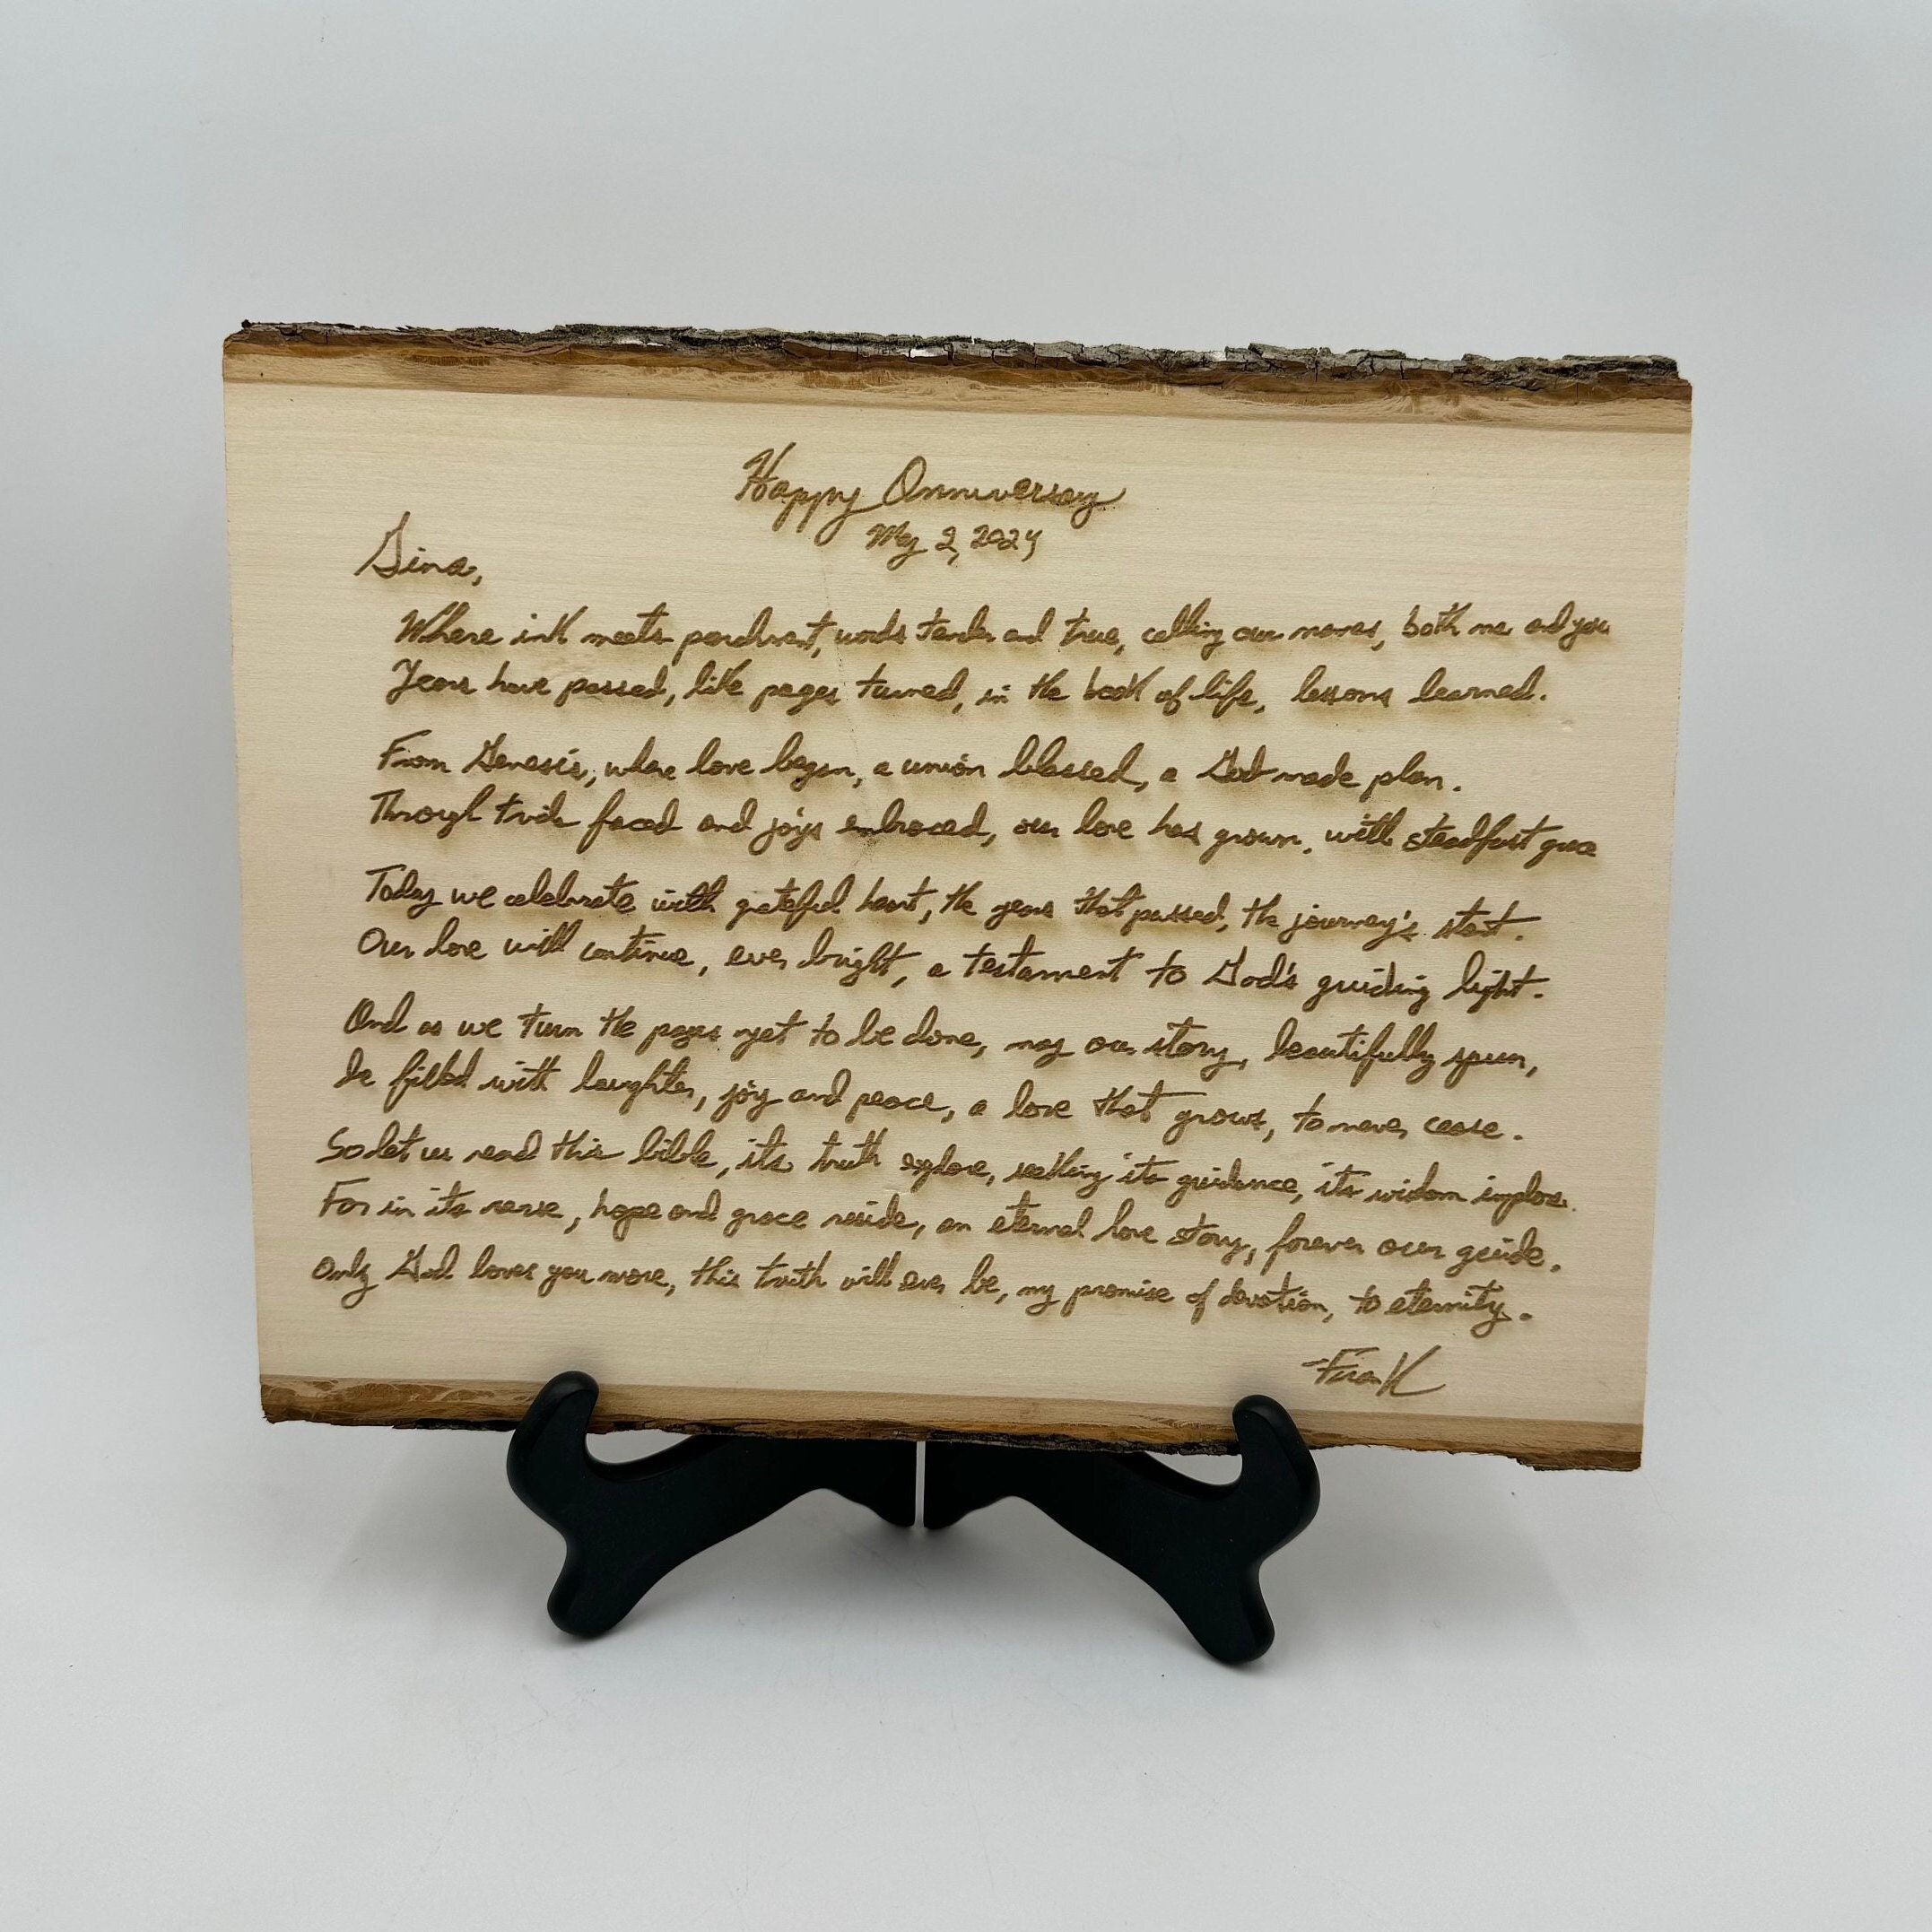 Happy Anniversary
May 2, 2024
Gina,
Where ink meets parchment, words tender and true, calling our names, both me and you
Years have passed, like pages turned, in the book of life, lessons learned.
From Genesis, where love began, a union blessed, a God made plan.
Through trials faced and joys embraced, our love has grown, with steadfast grace
Today we celebrate with grateful heart, the years that passed, the journey's start.
Our love will continue, ever bright, a testament to God's guiding light.
And as we turn the pages yet to be done, may our story, beautifully spun,
be filled with laughter, joy and peace, a love that grows, to never cease.
So let us read this bible, its truth explore, seeking its guidance, its wisdom implore.
For in its verse, hope and grace reside, an eternal love story, forever our guide.
Only God loves you more, this truth will ever be, my promise of devotion, to eternity.
-Frank